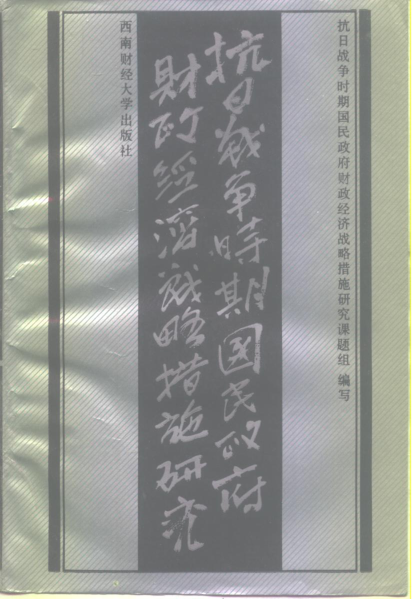 抗日战争时期国民政府财政经济战略措施研究课题组 编写
抗日戰争時期國民政府
財政經濟戰略措施研究
西南财经大学出版社